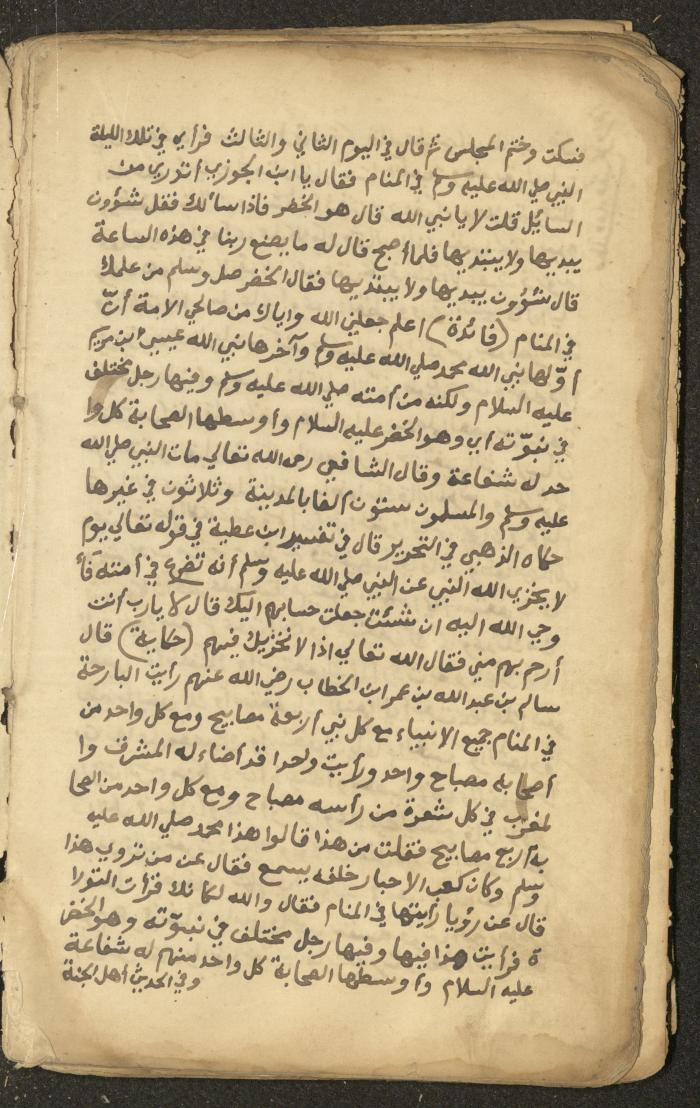 فسكت وختم المجلس ثم قال في اليوم الثاني والثالث فرأى في تلك الليلة
النبي صلي الله عليه وسلم في المنام فقال يا ابن الجوزي أتدري من
السائل قلت لا يا نبي الله قال هو الخضر فاذا سألك فقل شؤون
يبديها ولا يبتديها فلما أصبح قال له ما يصنع ربنا في هذه الساعة
قال شؤون يبديها ولا يبتديها فقال الخضر صل وسلم من علمك
في المنام (فائدة) اعلم جعلني الله واياك من صالحي الامة أنّ
أوّلها نبي الله محمد صلي الله عليه وسلم وآخرها نبي الله عيسى ابن مريم
عليه السلام ولكنه من أمته صلي الله عليه وسلم وفيها رجل مختلف
في نبوّته أي وهو الخضر عليه السلام وأوسطها الصحابة كل وا
حد له شفاعة وقال الشافعي رحمه الله تعالي مات النبي صلي الله
عليه وسلم والمسلمون ستون ألفا بالمدينة وثلاثون في غيرها
حكاه الذهبي في التحرير قال في تفسير ابن عطية في قوله تعالي يوم
لا يخزي الله النبي عن النبي صلي الله عليه وسلم أنه تضرع في أمته فأ
وحي الله اليه ان شئت جعلت حسابهم اليك قال لا يا رب أنت
أرحم بهم مني فقال الله تعالي اذا لا نخزيك فيهم (حكاية) قال
سالم بن عبد الله بن عمر ابن الخطاب رضي الله عنهم رأيت البارحة
في المنام جميع الانبياء مع كل نبي أربعة مصابيح ومع كل واحد من
أصحابه مصباح واحد ورأيت واحدا قد أضاء له المشرق وا
لمغرب في كل شعرة من رأسه مصباح ومع كل واحد من الصحا
به أربع مصابيح فقلت من هذا قالوا هذا محمد صلي الله عليه
وسلم وكان كعب الاحبار خلفه يسمع فقال عن من تروي هذا
قال عن رؤيا رأيتها في المنام فقال والله لكأنك قرأت التورا
ة فرأيت هذا فيها وفيها رجل مختلف في نبوّته وهو الخضر
عليه السلام وأوسطها الصحابة كل واحد منهم له شفاعة
وفي الحديث أهل الجنة